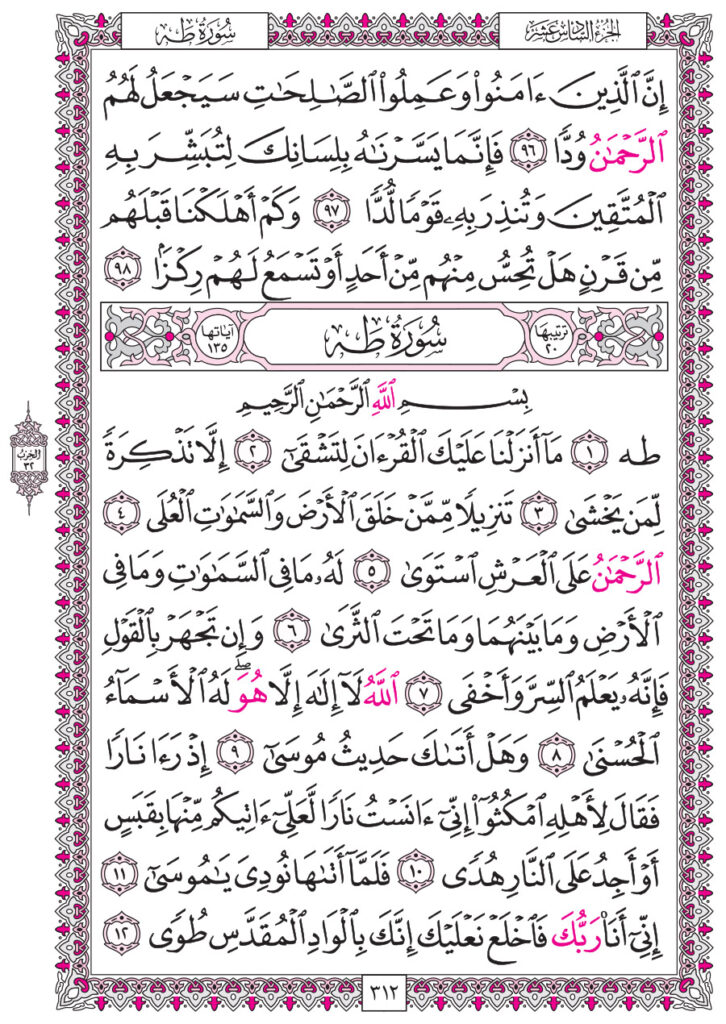 الجزء السادس عشر
سورة طه
إِنَّ ٱلَّذِينَ ءَامَنُوا۟ وَعَمِلُوا۟ ٱلصَّٰلِحَٰتِ سَيَجْعَلُ لَهُمُ
ٱلرَّحْمَٰنُ وُدًّا ٩٦ فَإِنَّمَا يَسَّرْنَٰهُ بِلِسَانِكَ لِتُبَشِّرَ بِهِ
ٱلْمُتَّقِينَ وَتُنذِرَ بِهِۦ قَوْمًا لُّدًّا ٩٧ وَكَمْ أَهْلَكْنَا قَبْلَهُم
مِّن قَرْنٍ هَلْ تُحِسُّ مِنْهُم مِّنْ أَحَدٍ أَوْ تَسْمَعُ لَهُمْ رِكْزًۢا ٩٨
ترتيبها ٢٠
سورة طه
آياتها ١٣٥
بِسْمِ ٱللَّهِ ٱلرَّحْمَٰنِ ٱلرَّحِيمِ
طه ١ مَآ أَنزَلْنَا عَلَيْكَ ٱلْقُرْءَانَ لِتَشْقَىٰٓ ٢ إِلَّا تَذْكِرَةً
لِّمَن يَخْشَىٰ ٣ تَنزِيلًا مِّمَّنْ خَلَقَ ٱلْأَرْضَ وَٱلسَّمَٰوَٰتِ ٱلْعُلَى ٤
ٱلرَّحْمَٰنُ عَلَى ٱلْعَرْشِ ٱسْتَوَىٰ ٥ لَهُۥ مَا فِى ٱلسَّمَٰوَٰتِ وَمَا فِى
ٱلْأَرْضِ وَمَا بَيْنَهُمَا وَمَا تَحْتَ ٱلثَّرَىٰ ٦ وَإِن تَجْهَرْ بِٱلْقَوْلِ
فَإِنَّهُۥ يَعْلَمُ ٱلسِّرَّ وَأَخْفَى ٧ ٱللَّهُ لَآ إِلَٰهَ إِلَّا هُوَ ۖ لَهُ ٱلْأَسْمَآءُ
ٱلْحُسْنَىٰ ٨ وَهَلْ أَتَىٰكَ حَدِيثُ مُوسَىٰٓ ٩ إِذْ رَءَا نَارًا
فَقَالَ لِأَهْلِهِ ٱمْكُثُوٓا۟ إِنِّىٓ ءَانَسْتُ نَارًا لَّعَلِّىٓ ءَاتِيكُم مِّنْهَا بِقَبَسٍ
أَوْ أَجِدُ عَلَى ٱلنَّارِ هُدًى ١٠ فَلَمَّآ أَتَىٰهَا نُودِىَ يَٰمُوسَىٰٓ ١١
إِنِّىٓ أَنَا۠ رَبُّكَ فَٱخْلَعْ نَعْلَيْكَ إِنَّكَ بِٱلْوَادِ ٱلْمُقَدَّسِ طُوًى ١٢
الحزب
٣٢
٣١٢